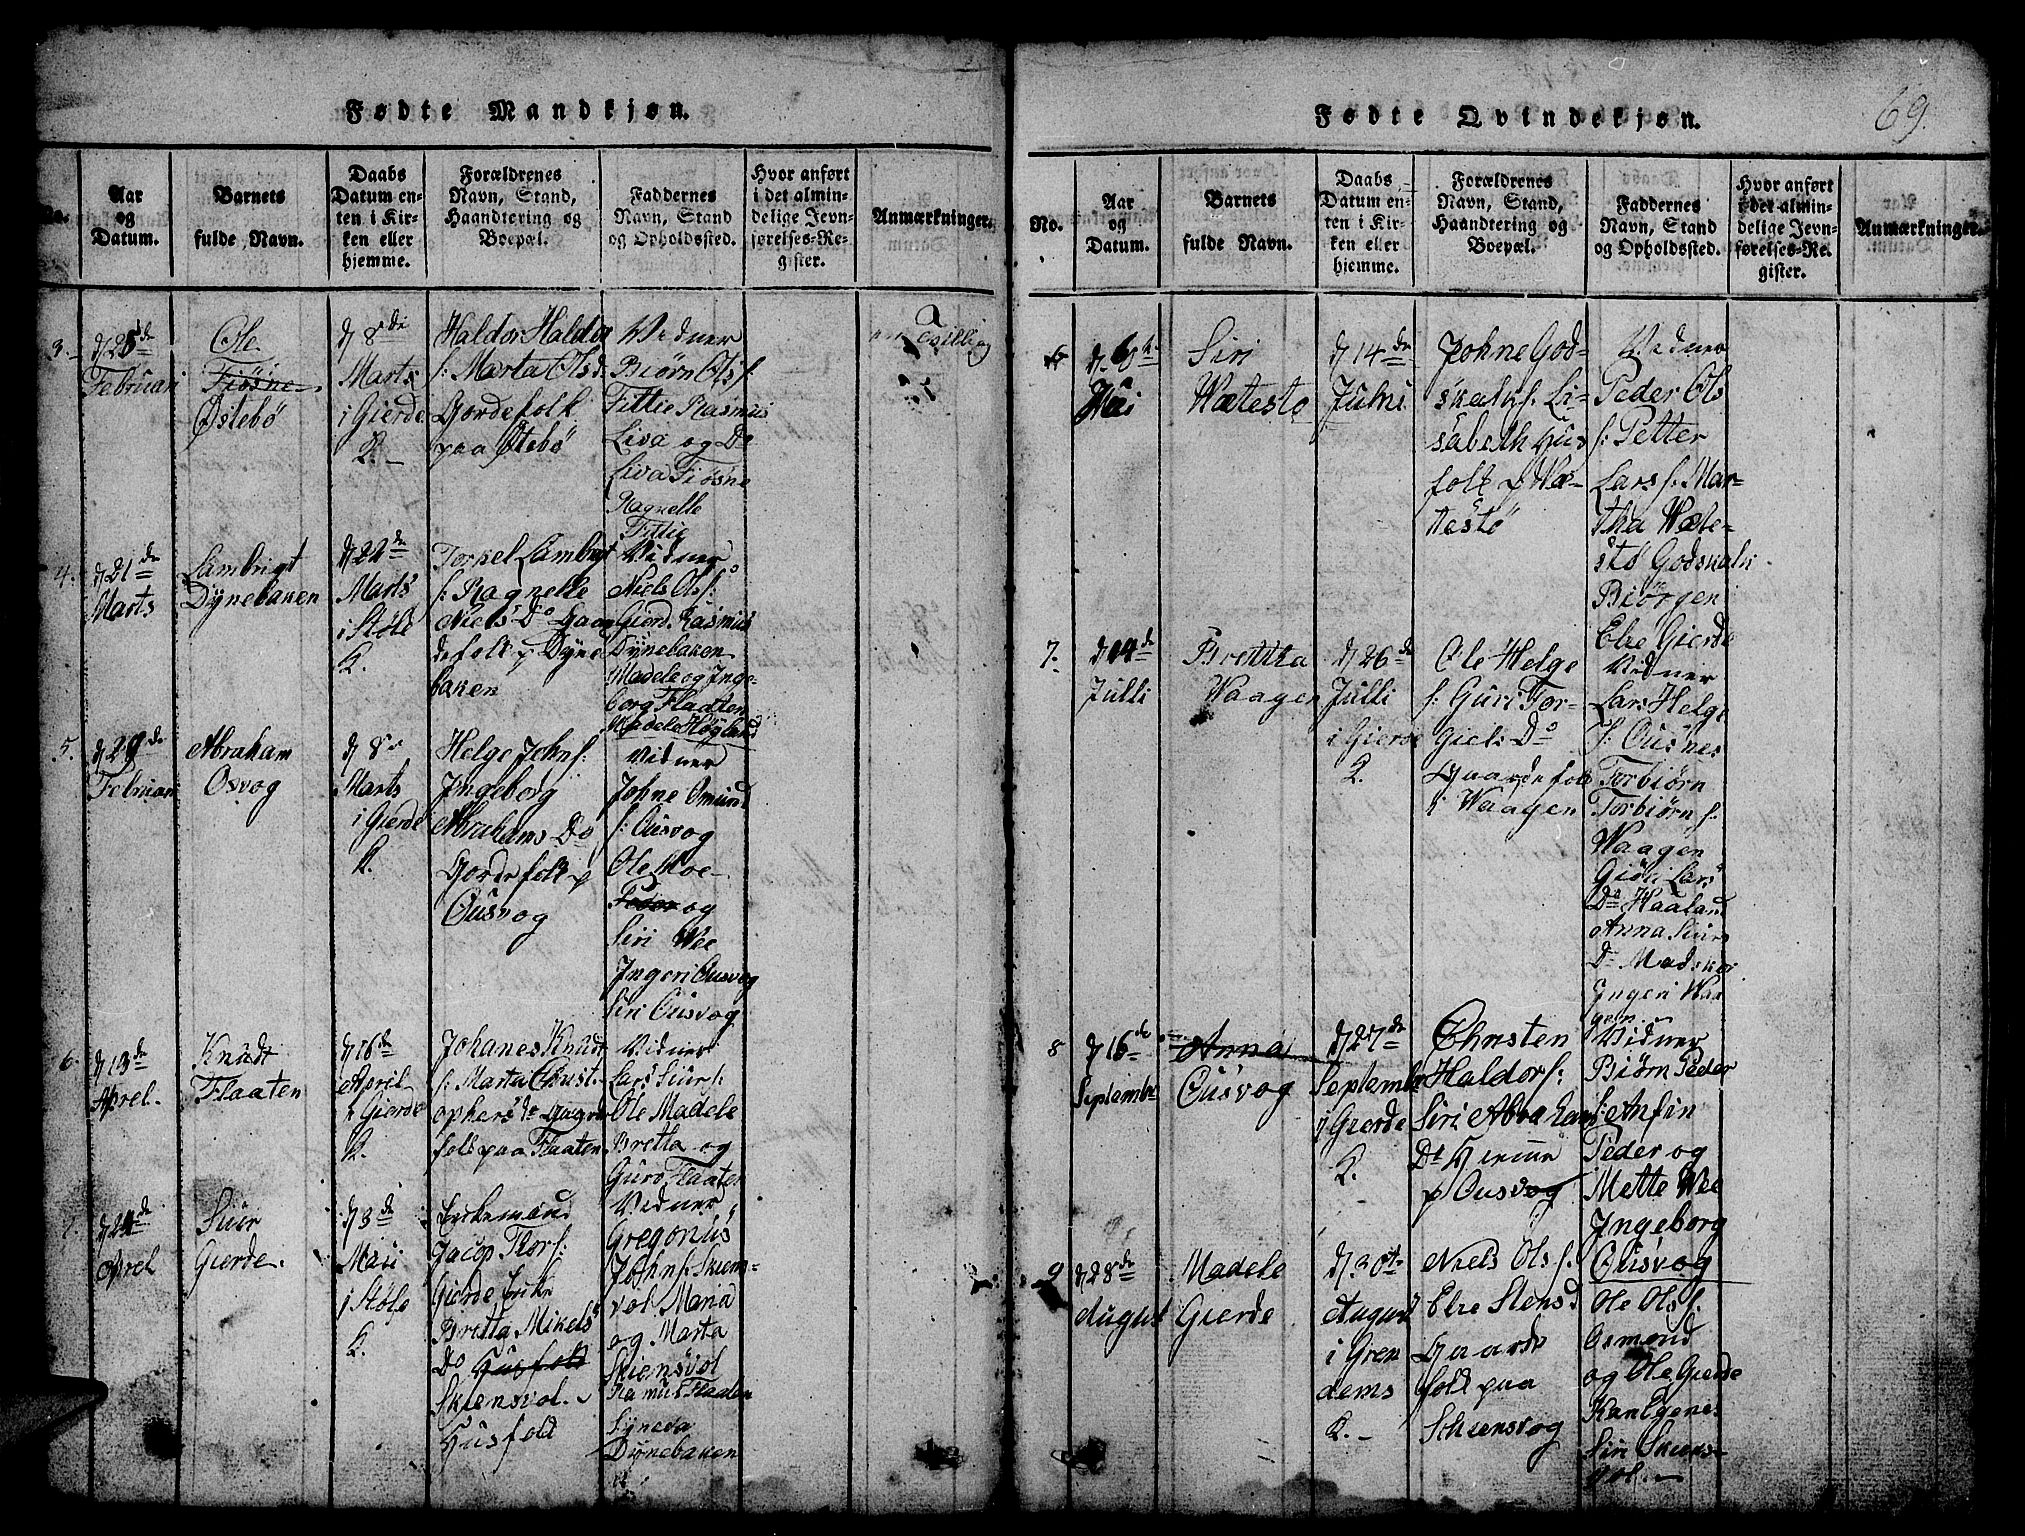 Fødte Mandkjøn.
No.
Aar
og
Datum.
Barnets
fulde Navn.
Daabs
Datum en-
ten i Kir-
ken eller
hjemme.
Forældrenes
Navn, Stand,
Haandtering og
Boepæl.
Faddernes
Navn, Stand
og Opholdssted.
Hvor anført
i det almin-
delige Jevn-
førelses-Re-
gister.
Anmærkninger.
3.
d 25de
Februari
Ole
Fiösne
Östebö
d 8de
Marts
i Gierde
K.
Haldor Haldor
s: Marta Olsd
Gordefolk
paa Östebö
Vidner
Biørn Ols s.
Fittie Rasmus
Liva og Do
Liva Fiösne
Ragnelle
Fittie
4.
d 21de
Marts
Lambrigt
Dÿnebaken
d 22de
Marts
i Stöle
K.
Torkel Lambrigt
s: Ragnelle
Niels Do Gaar
defolk p Dÿne
baken
Vidner
Niels Ols s:
Gierd. Rasmus
Dÿnebaken
Madele og Inge-
borg Fladten
Madele Högland
5.
d 29de
Februari
Abraham
Osvog
d 8de
Marts
i Gierde
K.
Helge Johns:
Ingeborg
Abrahams Do
Gordefolk p
Ousvog
Vidner
Johne Omund
s: Ousvog
Ole Moe
Peder og
Siri Wee
Ingeri Ousvog
Siri Ousvog
6.
d 13de
Aprel.
Knudt
Flaaten
d 16de
April
i Gierde
K.
Johanes Knudt
s: Marta Christ.
ophers de Gaard
folk paa Flaaten
Vidner
Lars Siurs:
Ole Madele
Bretta og
Guro Flaaten
7.
d 24de
Aprel
Siur
Gierde.
d 3de
Mai
i Stöle
K.
Enkemand
Jacop Thors:
Gierde Enke
Bretta Mikels
Do Husfolk
Skiensvol.
Husfold
Vidner
Gregorius
Johns: Skiens-
vol Maria
og Marta
Skiensvol
Rasmus Flaaten
Sÿneva
Dÿnebaken
Fødte Qvindekjøn.
69.
No.
Aar
og
Datum.
Barnets
fulde Navn.
Daabs
Datum en-
ten i Kir-
ken eller
hjemme.
Forældrenes
Navn, Stand,
Haandtering og
Boepæl.
Faddernes
Navn, Stand
og Opholdssted.
Hvor anført
i det almin-
delige Jevn-
førelses-Re-
gister.
Anmærkninger.
6
d 6te
Mai
Siri
Wætestø
d 14de
Juhni
Johne God-
skalks: Li-
sabeth Hus
folk p Wæ-
testö
Vidner
Peder Ols
s: Petter
Lars s: Mar-
tha Wæte-
stø Godskalk
Biörgen
Else Gierde
7.
d 14de
Julli
Bretta
Waagen
d 26de
Julli
i Gierde
K.
Ole Helge
s: Guri Tor-
giels Do
Gaardefolk
i Waagen
Vidner
Lars Helge
s: Ousnes
Torbiørn
Torbiørn s:
Waagen
Giöri Lars
Do Haaland
Anna Siurs
Do Madskor
Ingeri Waa
gen
8
d 16de
Septembr
Anna
Ousvog
d 27de
Septembr
i Gierde
K.
Christen
Haldors:
Siri Abraham
Do
p Ousvog
Vidner
Biørn Peder
s: Anfin
Peder og
Mette Wee
Ingeborg
Ousvog
9
d 28de
August
Madele
Gierde
d 30te
August
i Gren
dems
K.
Niels Ols s.
Else Stensd
Gaarde
folk paa
Schiensvog
Ole Ols s:
Osmond
og Ole Gierde
Siri Skiens-
vol.